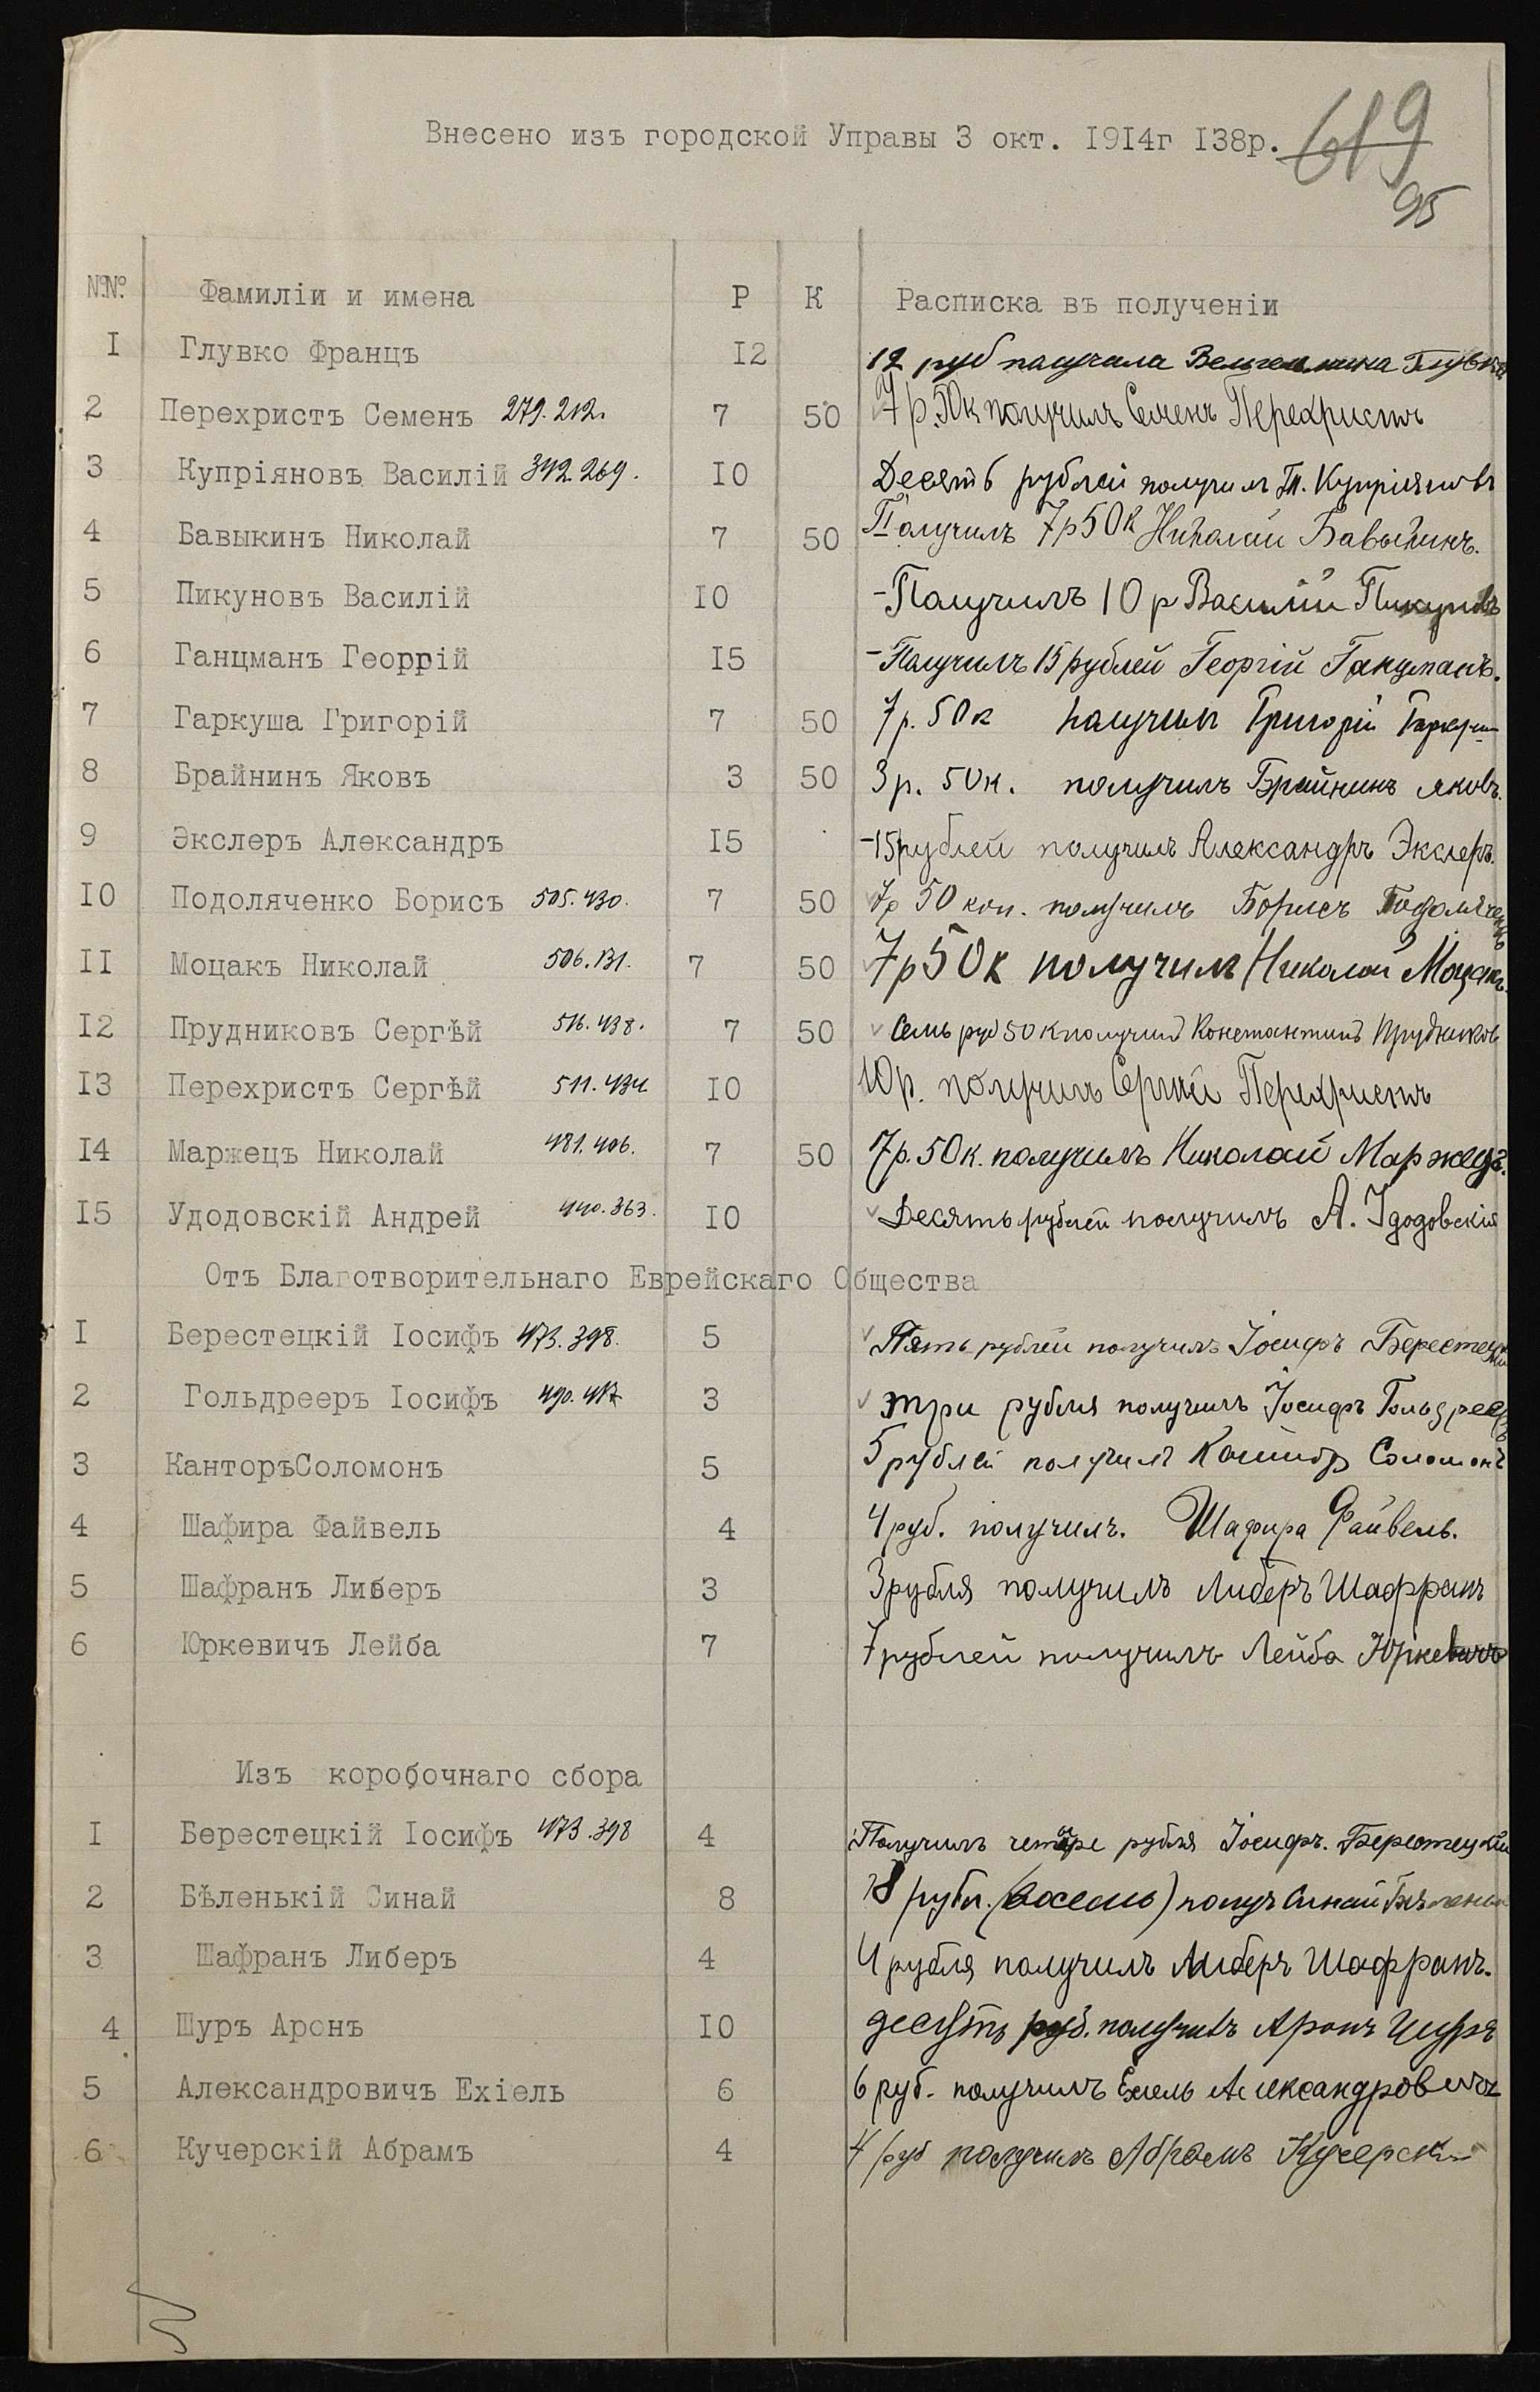 Внесено изъ городской Управы 3 окт. 1914г 138р.
619
95
№№. Фамиліи и имена Р К Расписка въ полученіи
I Глувко Францъ 12 12 руб палучала Вельгельмина Глувко
2 Перехристъ Семенъ 279.212. 7 50 7р.50к получилъ Семенъ Перехристъ
3 Купріяновъ Василій 342.269. 10 Десять рублей получилъ Купріяновъ
4 Бавыкинъ Николай 7 50 Палучилъ 7р50к Николай Бавыкинъ.
5 Пикуновъ Василій 10 -Палучилъ 10р Василій Пикуновъ
6 Ганцманъ Георргій 15 -Получилъ 15 рублей Георгій Ганцманъ.
7 Гаркуша Григорій 7 50 7р. 50к палучилъ Григорій Гаркуша
8 Брайнинъ Яковъ 3 50 3р. 50к. получилъ Брайнинъ Яковъ.
9 Экслеръ Александръ 15 -15рублей получилъ Александръ Экслеръ.
10 Подоляченко Борисъ 505.430. 7 50 7р 50 коп. получилъ Борисъ Подоляченко
II Моцакъ Николай 506.131. 7 50 7р50к получилъ Николай Моцакъ.
12 Прудниковъ Сергѣй 516.438. 7 50 Семь руб 50к получилъ Константинъ Прудников
13 Перехристъ Сергѣй 511.434 10 10р. получилъ Сергѣй Перехристъ
14 Маржецъ Николай 481.406. 7 50 7р.50к. получилъ Николай Маржецъ.
15 Удодовскій Андрей 440.363. 10 Десять рублей получилъ А. Удодовскій
Отъ Благотворительнаго Еврейскаго Общества
I Берестецкій Іосифъ 473.398. 5 Пять рублей получилъ Іосифъ Берестецкій
2 Гольдрееръ Іосифъ 490.417 3 три рубля получилъ Іосифъ Гольдрееръ
3 КанторъСоломонъ 5 5рублей получилъ Канторъ Соломонъ
4 Шафира Файвель 4 4руб. получилъ. Шафира Файвель.
5 Шафранъ Либеръ 3 3рубля получилъ Либеръ Шафранъ
6 Юркевичъ Лейба 7 7рублей получилъ Лейба Юркевичъ
Изъ коробочнаго сбора
I Берестецкій Іосифъ 473.398 4 Получилъ четыре рубля Іосифъ. Берестецкій
2 Бѣленькій Синай 8 8 рубл. (восемь) получ Синай Бѣленькій
3 Шафранъ Либеръ 4 4рубля получилъ Либеръ Шафранъ.
4 Шуръ Аронъ 10 десять руб. получилъ Аронъ Шуръ
5 Александровичъ Ехіель 6 6 руб. получилъ Ехіель Александровичъ
6 Кучерскій Абрамъ 4 4 руб получилъ Абрамъ Кучерскій